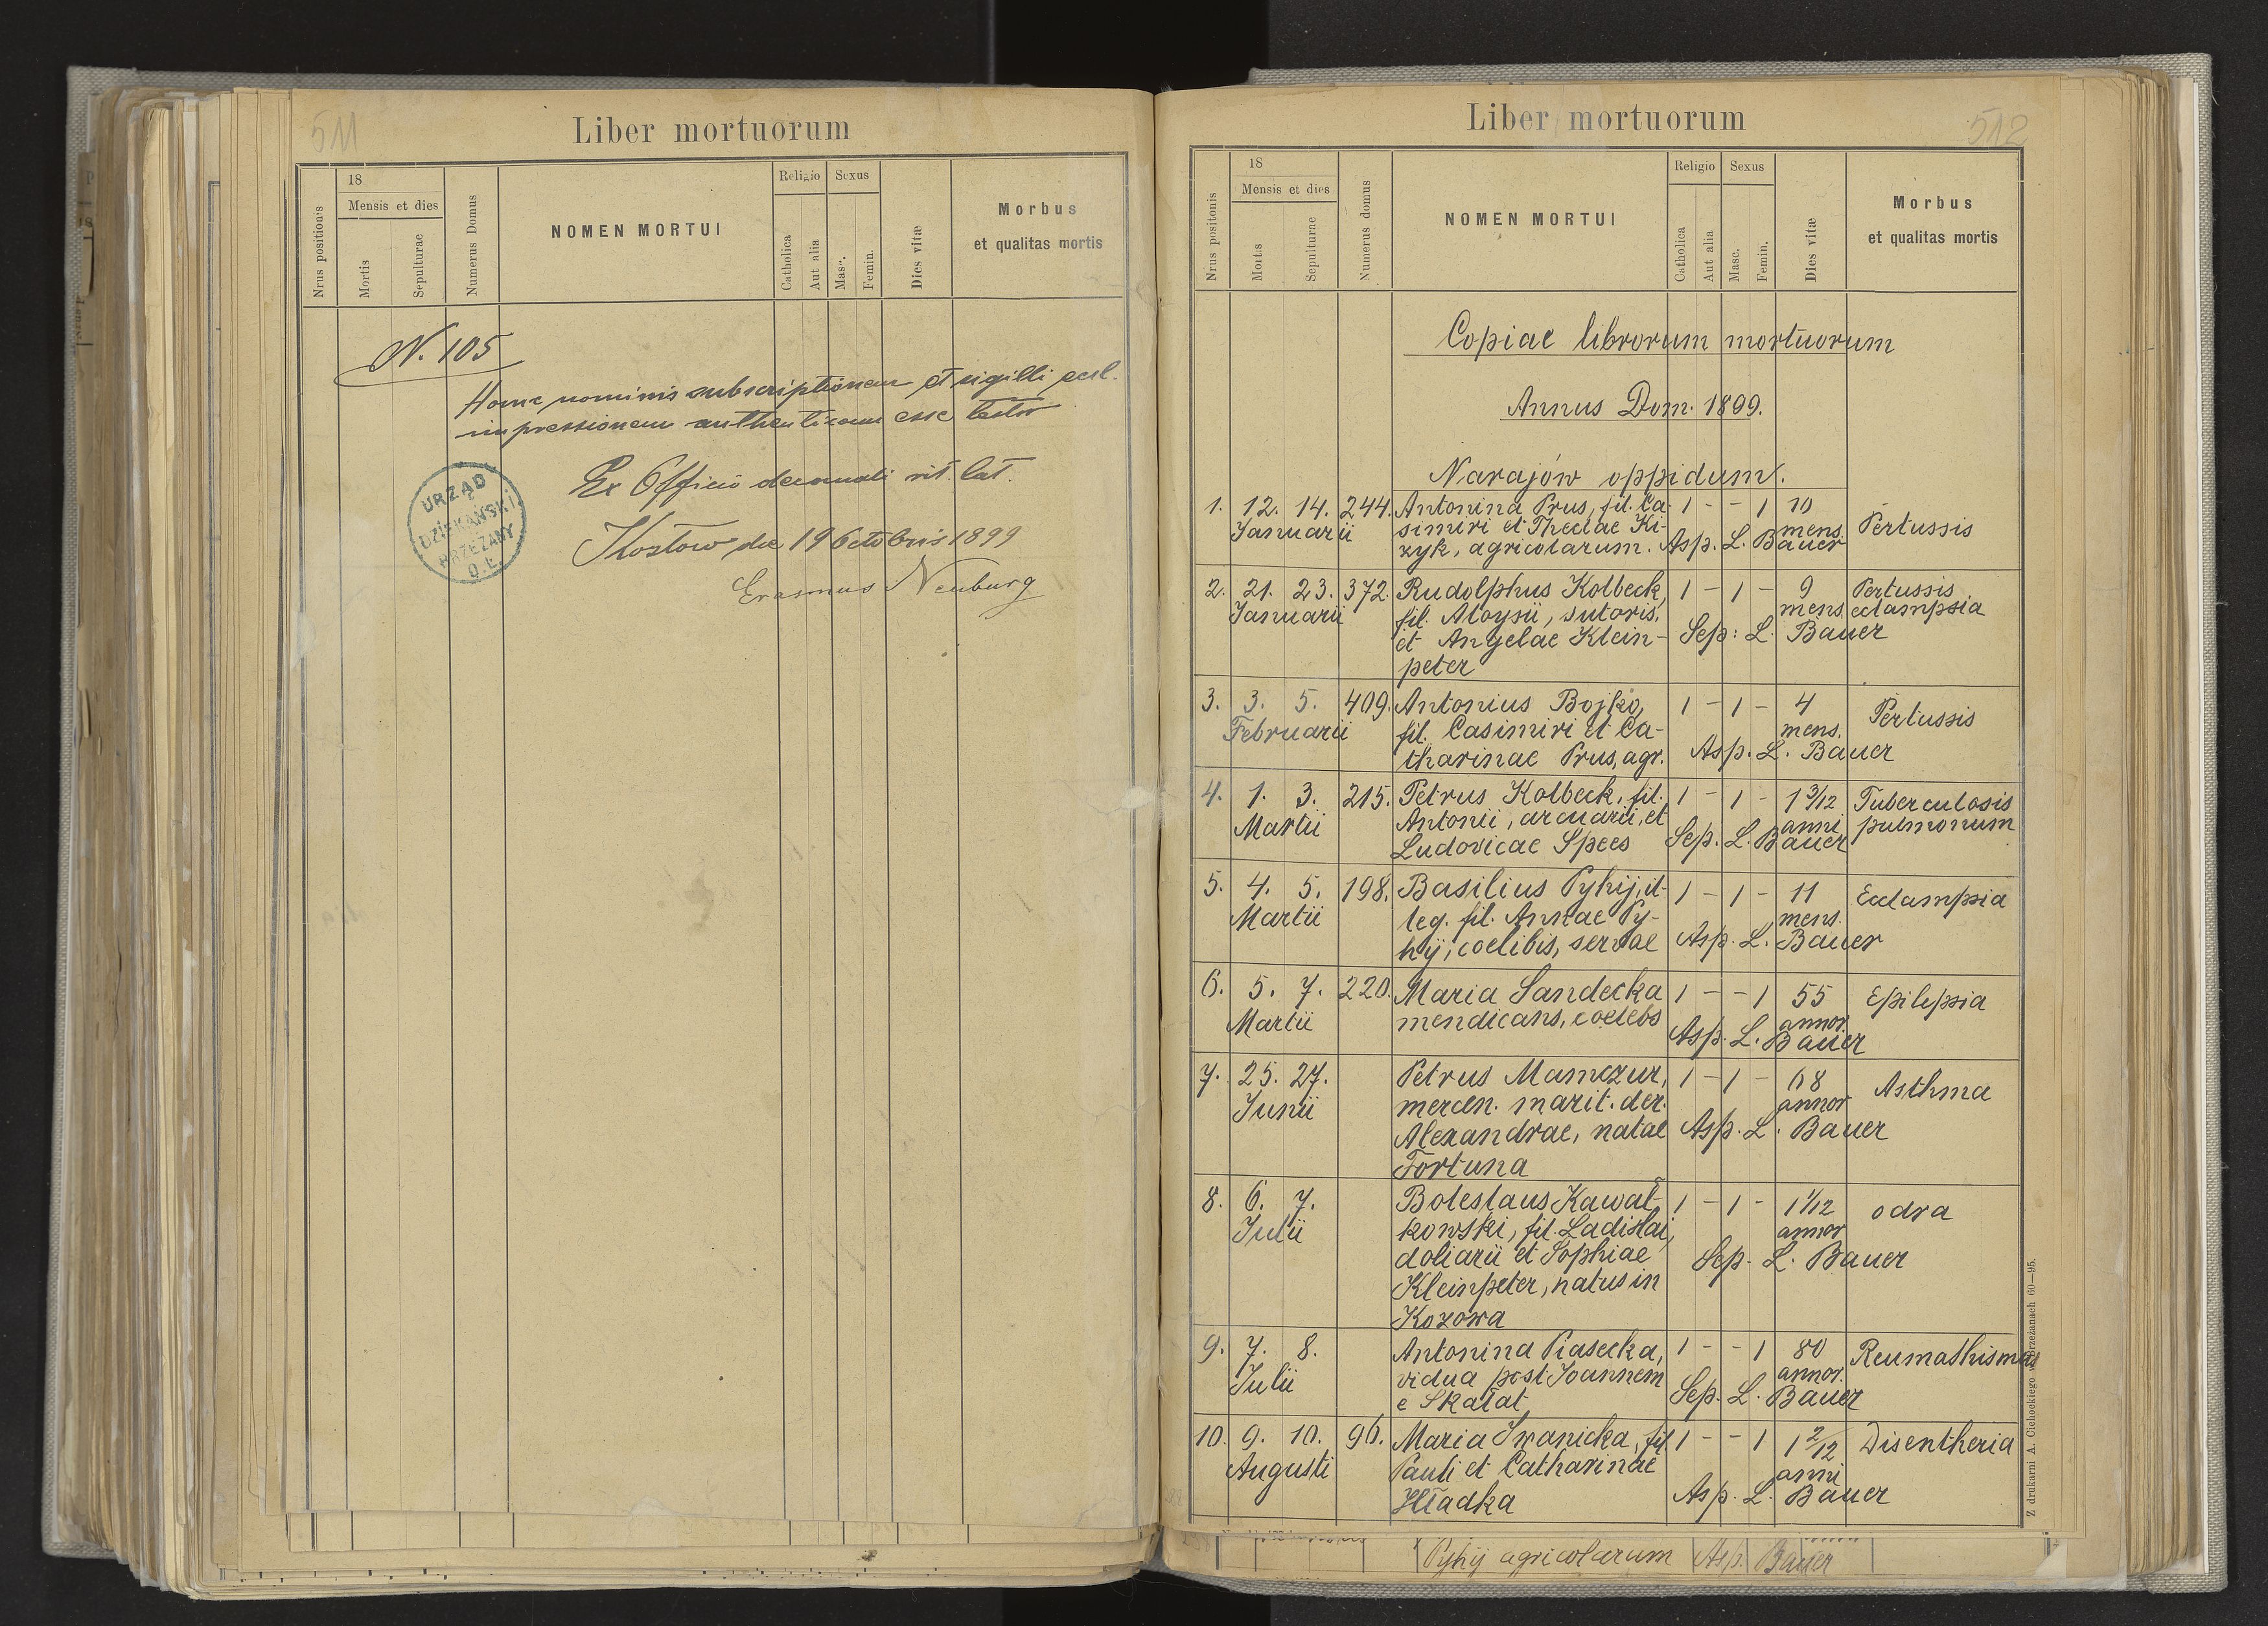 511
Liber mortuorum
Nrus positionis
18
Mensis et dies
Mortis
Sepulturae
Numerus Domus
NOMEN MORTUI
Religio
Catholica
Aut alia
Sexus
Masc.
Femin.
Dies vitæ
Morbus
et qualitas mortis
N. 105
Hanc nominis subscriptionem et sigilli eccl.
impressionem authenticam esse testor
Ex Officio decanali rit. lat.
Kozłow die 19 Octobris 1899
Erasmus Neuburg
URZĄD
DZIEKAŃSKI
BRZEŻANY
O. Ł.
512
Liber mortuorum
Nrus positonis
18
Mensis et dies
Mortis
Sepulturae
Numerus domus
NOMEN MORTUI
Religio
Catholica
Aut alia
Sexus
Masc.
Femin.
Dies vitæ
Morbus
et qualitas mortis
Copiae librorum mortuorum
Annus Dom. 1899.
Narajów oppidum.
1. 12. 14. 244. Antonina Prus, fil. Ca- 1 - - 1 10
Januarii simiri et Theclae Ki- mens. Pertussis
zyk, agricolarum. Asp. L. Bauer
2. 21. 23. 372. Rudolphus Kolbeck, 1 - 1 - 9 Pertussis
Januarii fil. Aloysii, sutoris, mens. eclampsia
et Angelae Klein- Sep: L. Bauer
peter
3. 3. 5. 409. Antonius Bojko, 1 - 1 - 4 Pertussis
Februarii fil. Casimiri et Ca- mens.
tharinae Prus, agr. Asp. L. Bauer
4. 1. 3. 215. Petrus Kolbeck, fil. 1 - 1 - 1 3/12 Tuberculosis
Martii Antonii, arcuarii, et anni pulmonum
Ludovicae Spees Sep. L. Bauer
5. 4. 5. 198. Basilius Pyhij, il- 1 - 1 - 11 Eclampsia
Martii leg. fil. Annae Py- mens.
hij, coelibis, servae Asp. L. Bauer
6. 5. 7. 220. Maria Sandecka 1 - - 1 55 Epilepsia
Martii mendicans, coelebs annor.
Asp. L. Bauer
7. 25. 27. Petrus Mamczur, 1 - 1 - 68 Asthma
Junii mercen. marit. der. annor
Alexandrae, natae Asp. L. Bauer
Fortuna
8. 6. 7. Boleslaus Kawał- 1 - 1 - 1 1/12 odra
Julii kowski, fil. Ladislai, annor
doliarii et Sophiae Sep. L. Bauer
Kleinpeter, natus in
Kozowa
9. 7. 8. Antonina Piasecka, 1 - - 1 80 Reumathismus
Julii vidua post Joannem annor.
e Skałat Sep. L. Bauer
10. 9. 10. 96. Maria Iwanicka, fil. 1 - - 1 1 2/12 Disentheria
Augusti Pauli et Catharinae anni
Hładka Asp. L. Bauer
Z drukarni A. Cichockiego w Brzeżanach 60—95.
Pyhij agricolarum Asp. Bauer